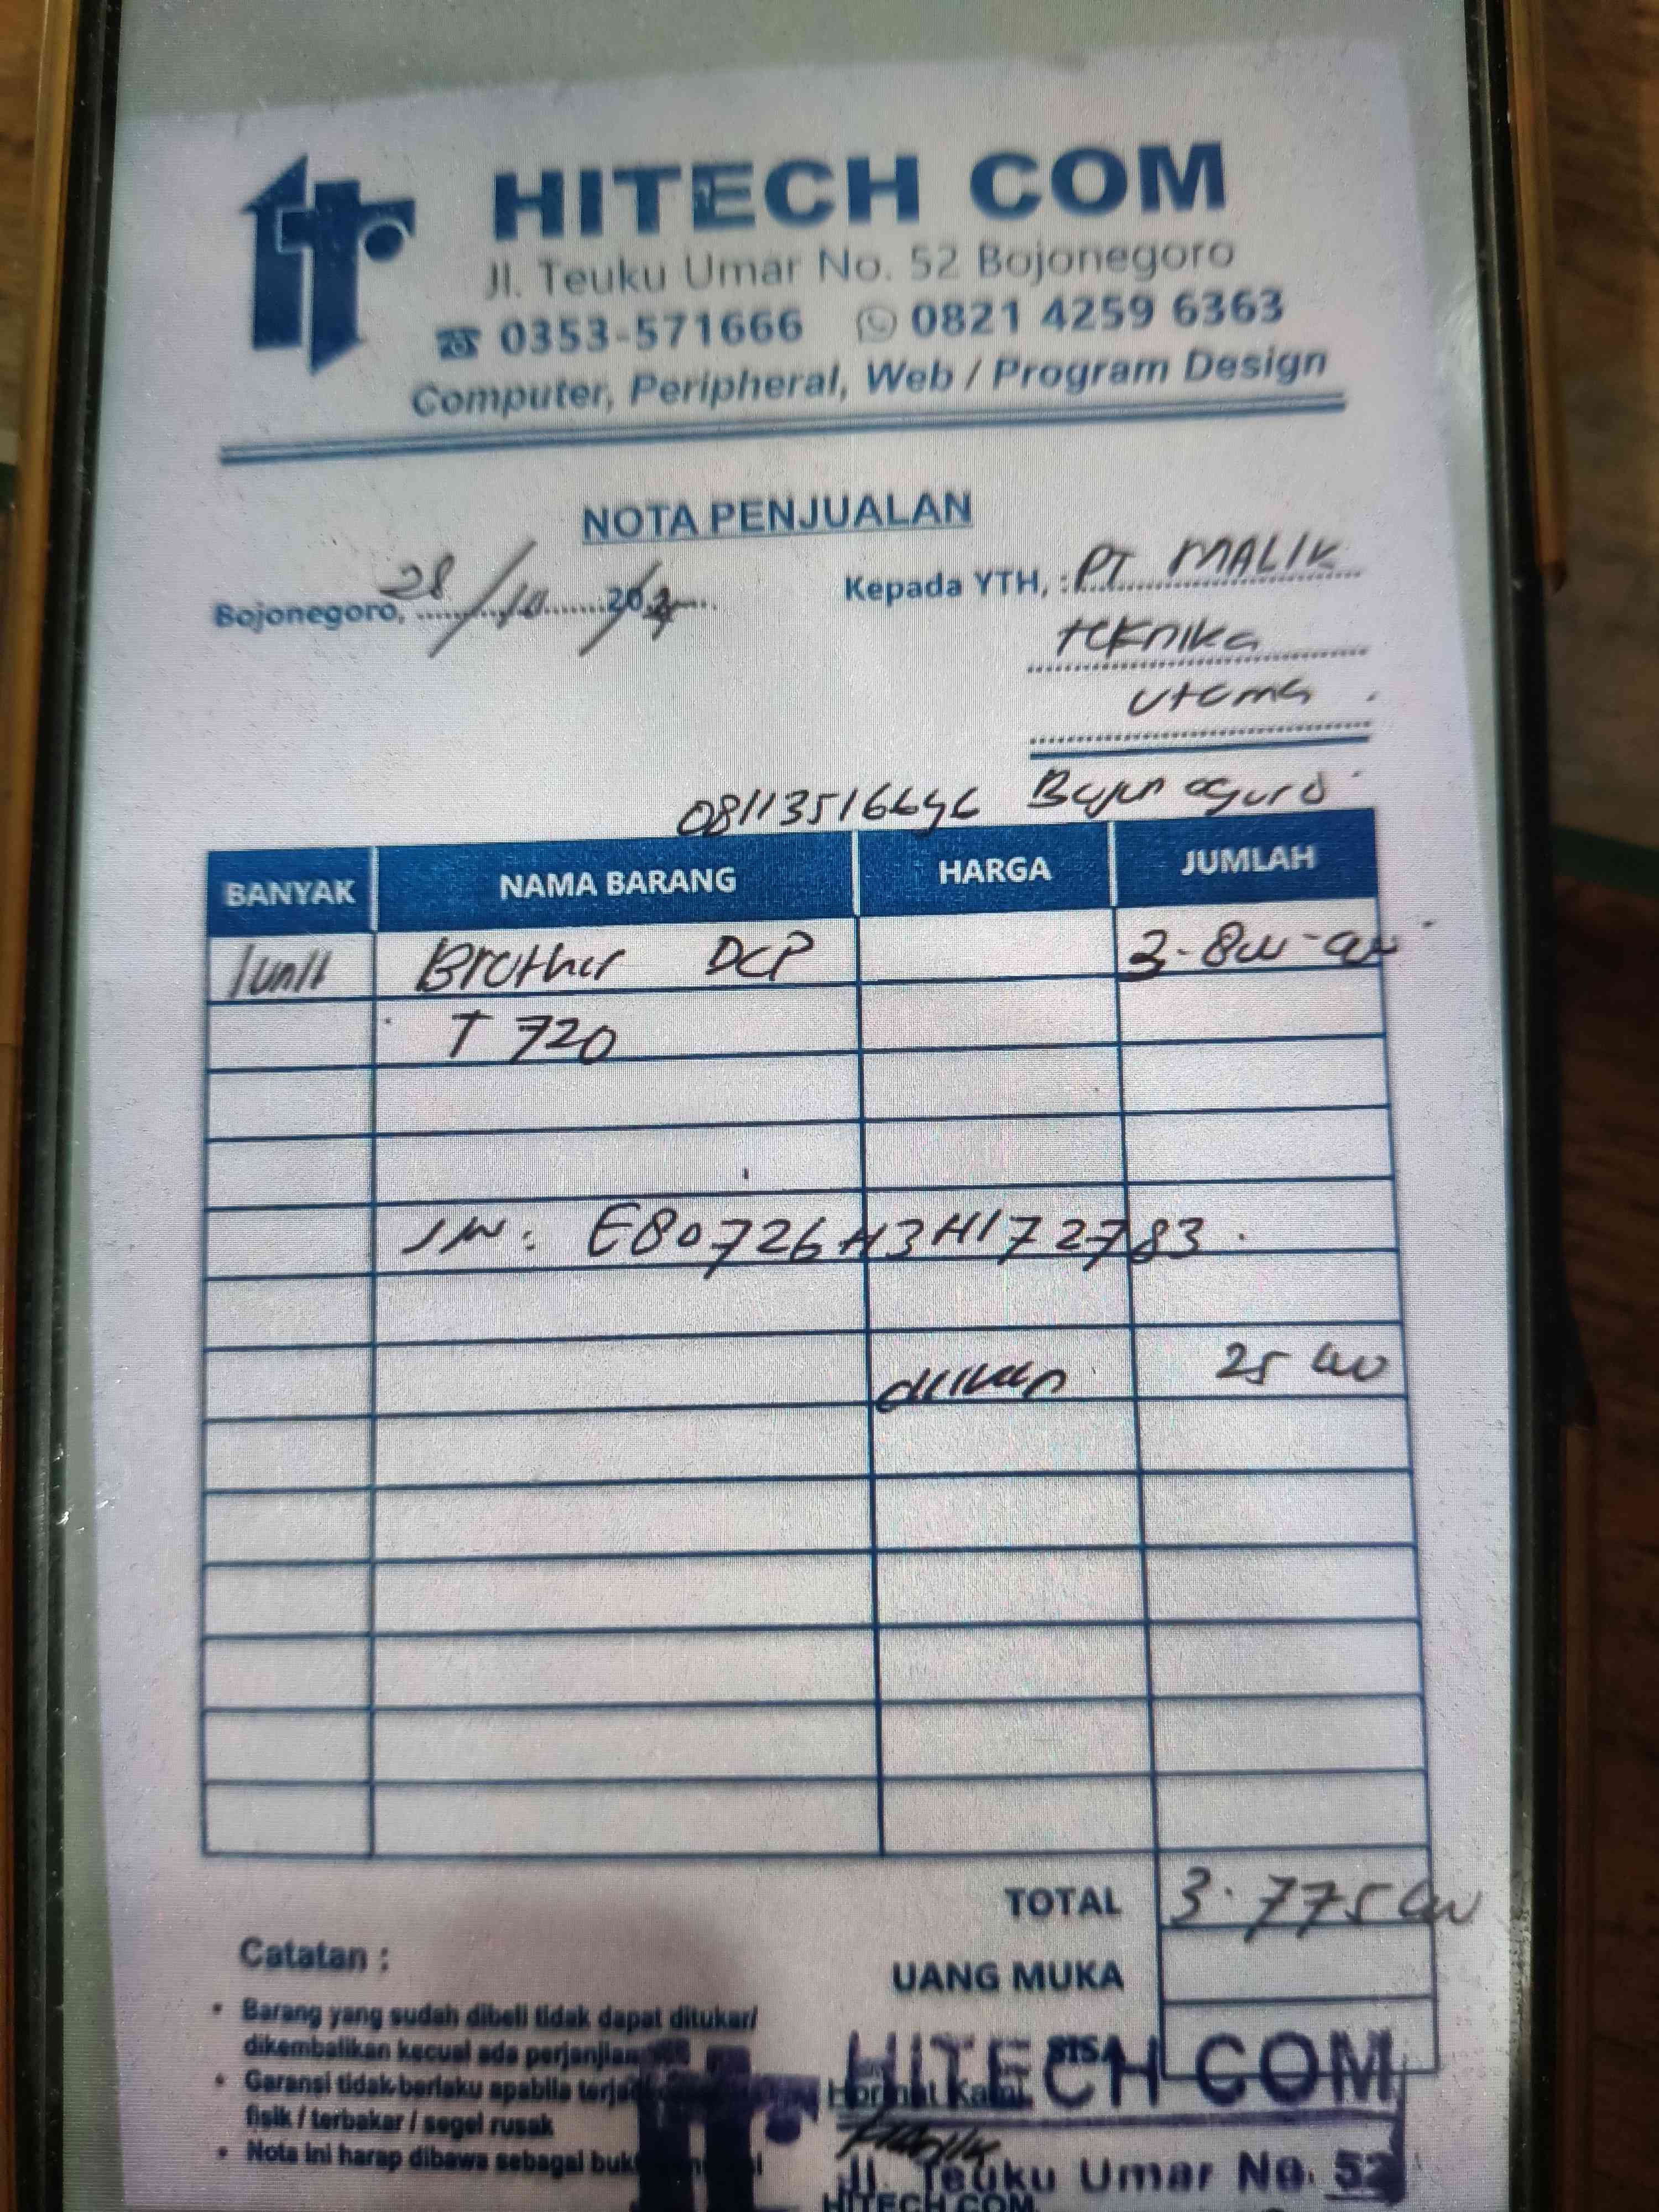 HITECH COM
Jl. Teuku Umar No. 52 Bojonegoro
0353-571666 0821 4259 6363
Computer, Peripheral, Web / Program Design
NOTA PENJUALAN
Bojonegoro, 28/10/2024
Kepada YTH, : PT MALIK
teknika
utama
Bojonegoro
BANYAK NAMA BARANG HARGA JUMLAH
1 unit Brother DCP 3.800.000
T 720
S/N: E80726H3H172783
25.000
TOTAL 3.775.000
UANG MUKA
SISA
Catatan :
• Barang yang sudah dibeli tidak dapat ditukar/
dikembalikan kecuali ada perjanjian
• Garansi tidak berlaku apabila
fisik / terbakar / segel rusak
• Nota ini harap dibawa sebagai
Hormat Kami,
HITECH COM
Jl. Teuku Umar No. 52
HITECH COM